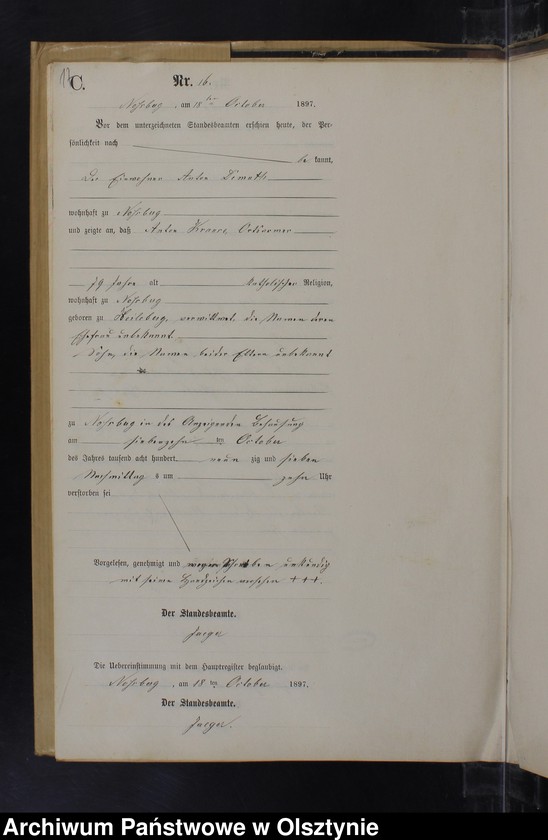 13
C.
Nr. 16.
Nossberg, am 18ten October 1897.
Vor dem unterzeichneten Standesbeamten erschien heute, der Per-
sönlichkeit nach
be kannt,
Der Einwohner Anton
wohnhaft zu Nossberg
und zeigte an, daß Anton Ortsarmer
79 Jahre alt katholischer Religion,
wohnhaft zu Nossberg
geboren zu verwittwet, die Namen deren
Ehefrau unbekannt
Sohn, die Namen beider Eltern unbekannt
zu Nossberg in des Anzeigenden Behausung
am siebenzehn ten October
des Jahres tausend acht hundert neun zig und sieben
Nachmittag s um zehn Uhr
verstorben sei
Vorgelesen, genehmigt und wegen Schreiben unkundig
mit seinen Handzeichen versehen +++.
Der Standesbeamte.
Jaeger
Die Uebereinstimmung mit dem Hauptregister beglaubigt.
Nossberg, am 18 ten October 1897.
Der Standesbeamte.
Jaeger.
Archiwum Państwowe w Olsztynie